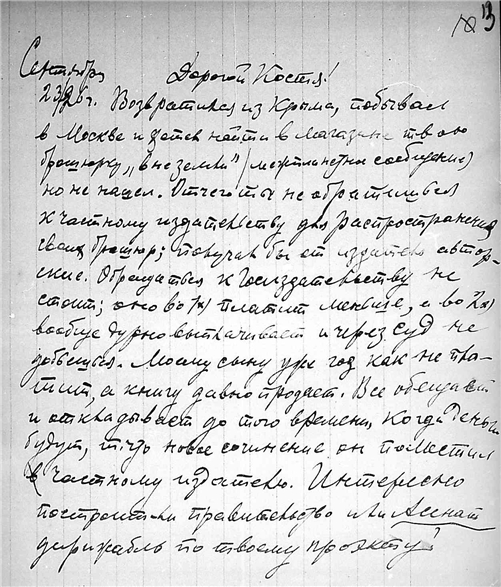 13
Сентября Дорогой Костя!
23/26 г. Возвратился из Крыма, побывал
в Москве и хотел найти в магазине твою
брошюрку „Вне земли” (межпланетные сообщения)
но не нашел. Отчего ты не обратишься
к частному издательству для распространения
своих брошюр; получал бы от издателя автор-
ские. Обращаться к Госиздательству не
стоит; оно во 1х) платит меньше, а во 2х)
вообще дурно выплачивает и через суд не
добьешься. Моему сыну уже год как не пла-
тит, а книгу давно продает. Все обещает
и откладывает до того времени, когда деньги
будут, новое сочинение он поместил
в частному издателю. Интересно
построит ли правительство или
дирижабль по твоему проэкту?